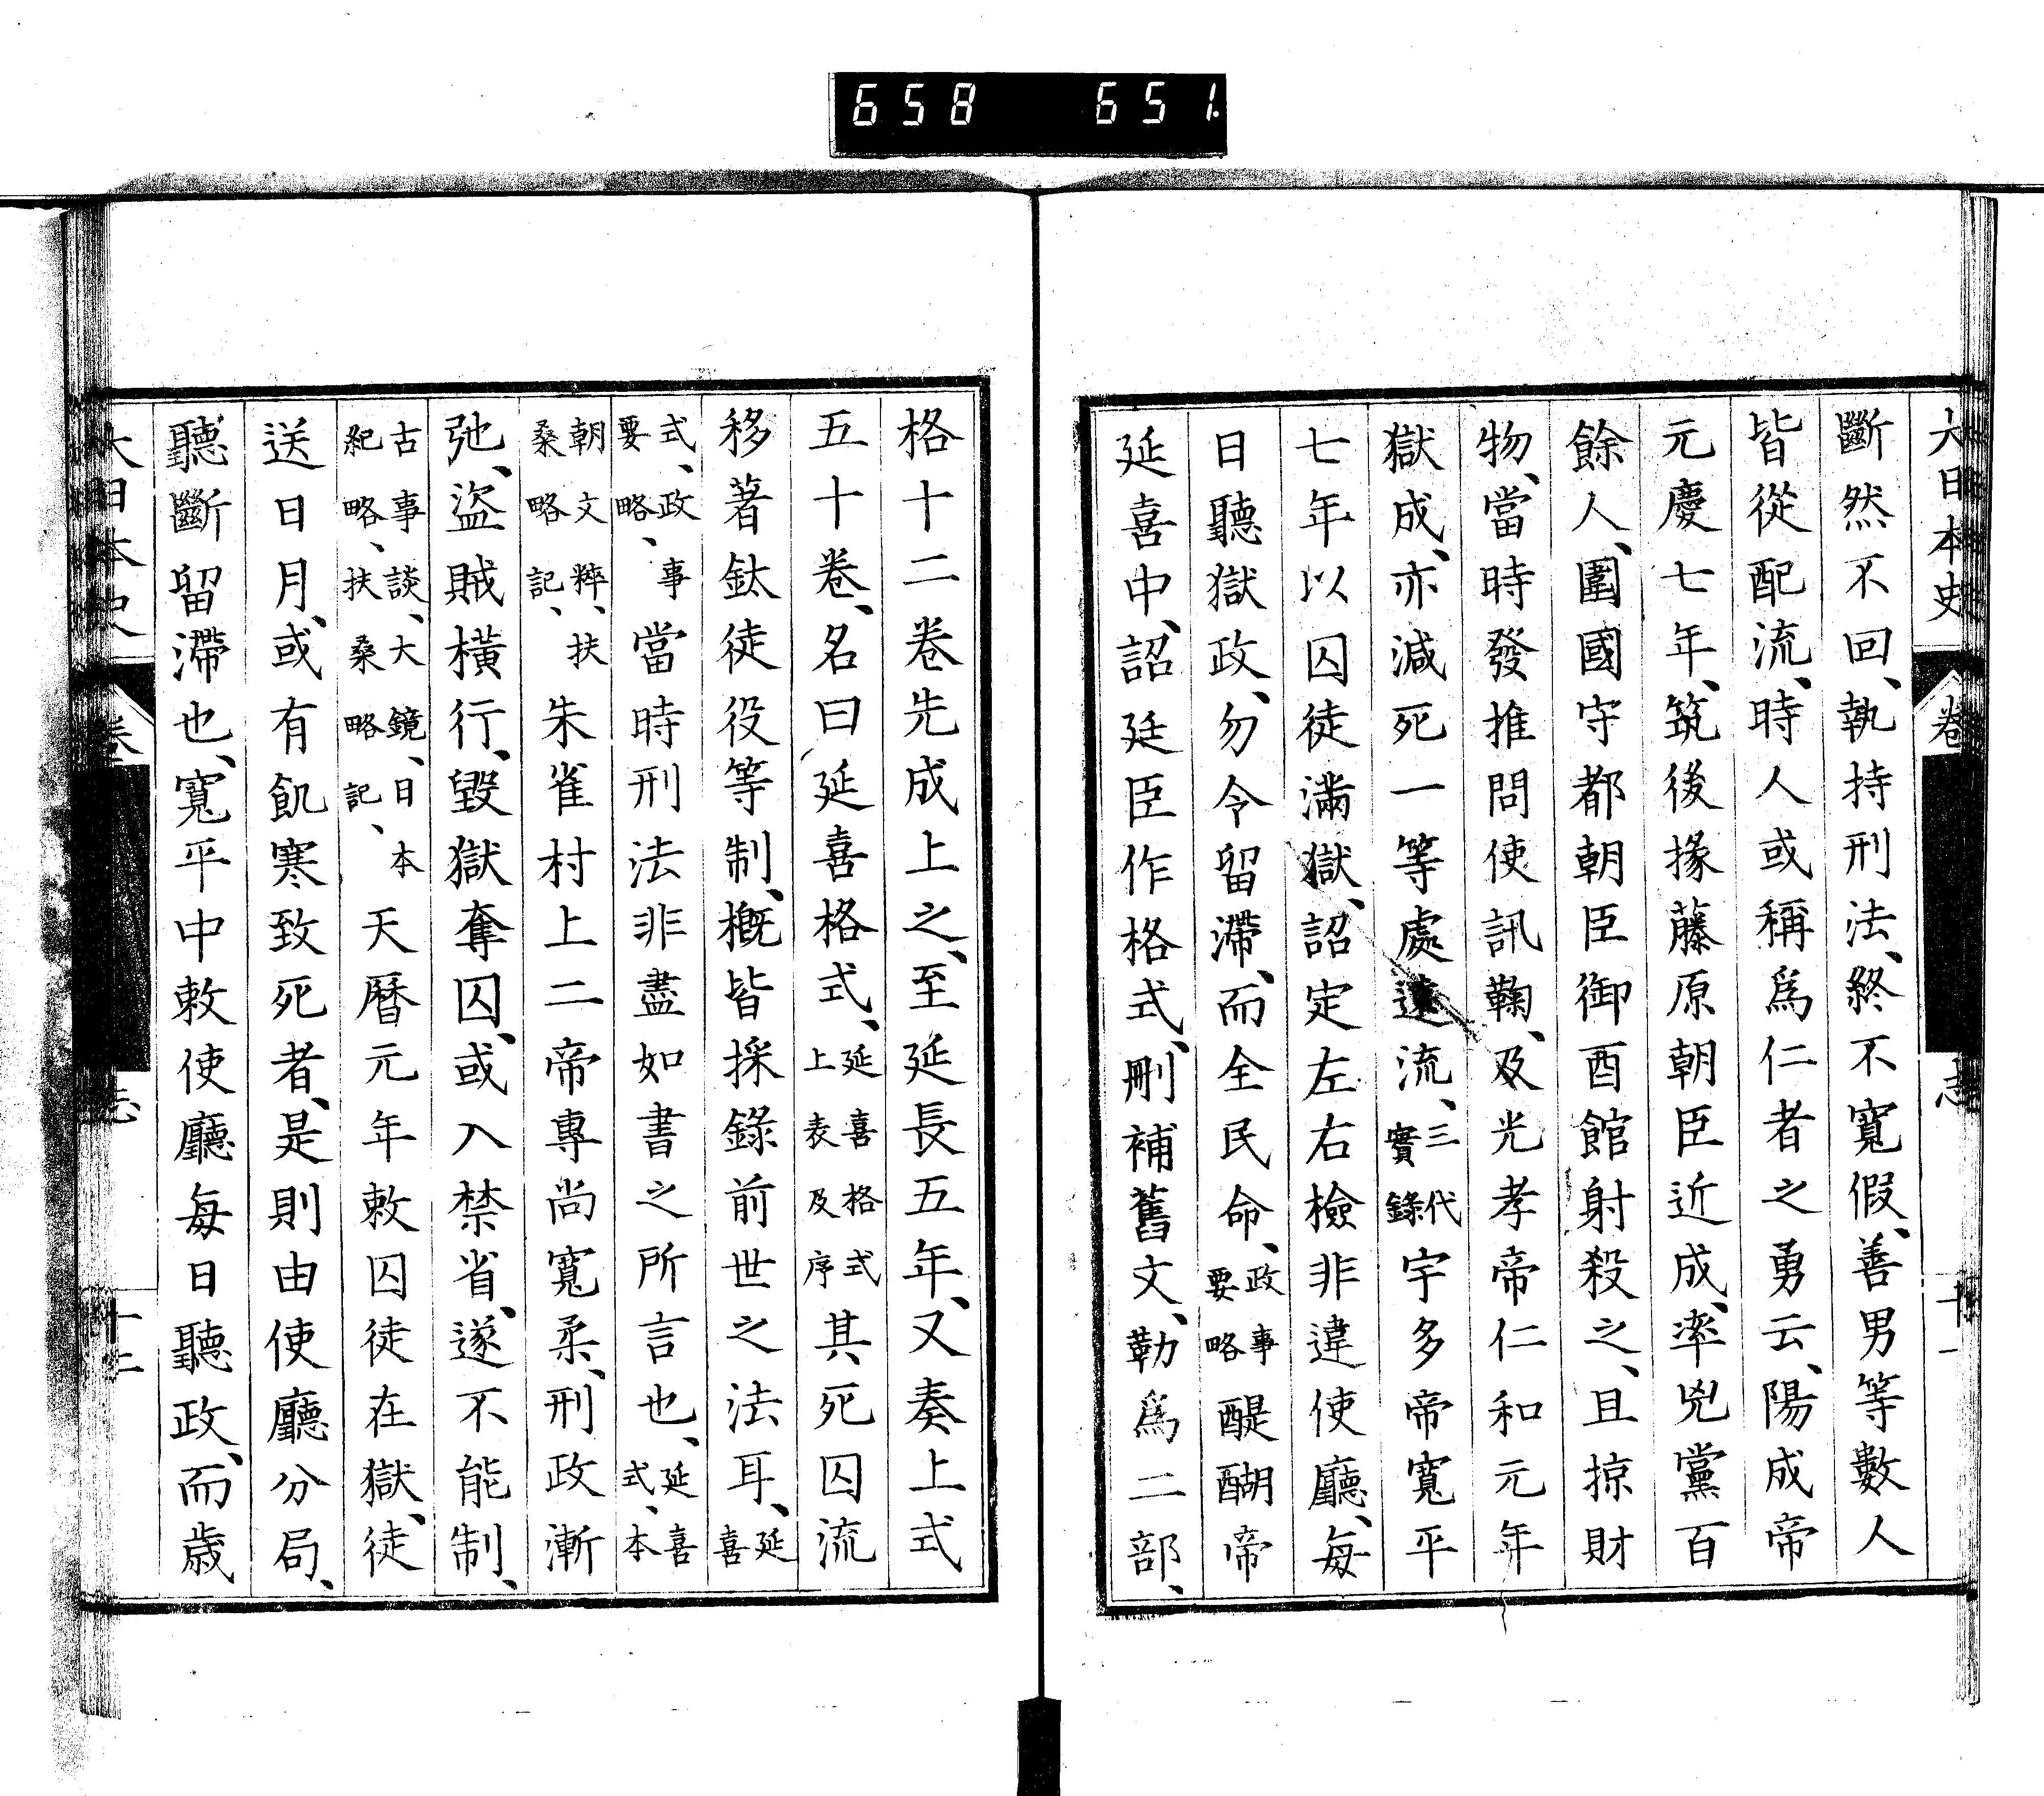 658 651
大日本史 卷 志 十一
斷然不回、執持刑法、終不寬假、善男等數人
皆從配流、時人或稱爲仁者之勇云、陽成帝
元慶七年、筑後掾藤原朝臣近成、率兇黨百
餘人、圍國守都朝臣御酉館射殺之、且掠財
物、當時發推問使訊鞠、及光孝帝仁和元年
獄成、亦減死一等處遠流、三代實錄宇多帝寬平
七年以囚徒滿獄、詔定左右檢非違使廳、每
日聽獄政、勿令留滯、而全民命、政事要略醍醐帝
延喜中、詔廷臣作格式、刪補舊文、勒爲二部、
格十二卷先成上之、至延長五年、又奏上式
五十卷、名曰延喜格式、延喜格式上表及序其死囚流
移著鈦徒役等制、概皆採錄前世之法耳、延喜
式、政事要略、當時刑法非盡如書之所言也、延喜式、本
朝文粹、扶桑略記、朱雀村上二帝專尚寬柔、刑政漸
弛、盜賊橫行、毀獄奪囚、或入禁省、遂不能制、
古事談、大鏡、日本紀略、扶桑略記、天曆元年敕囚徒在獄、徒
送日月、或有飢寒致死者、是則由使廳分局、
聽斷留滯也、寬平中敕使廳每日聽政、而歲
大日本史 卷 志 十二